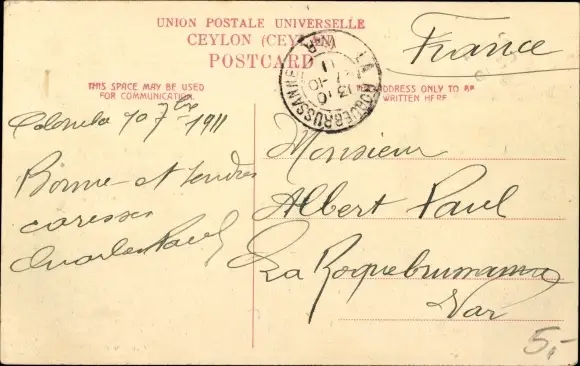 UNION POSTALE UNIVERSELLE
CEYLON (CEYLAN)
POSTCARD
THIS SPACE MAY BE USED
FOR COMMUNICATION
ADDRESS ONLY TO BE
WRITTEN HERE
LA ROQUEBRUSSANNE
VAR
13 10
11
France
Colombo 20 7bre 1911
Bonne et tendres
caresses
Charles Paul
Monsieur
Albert Paul
La Roquebrussanne
Var
5,-